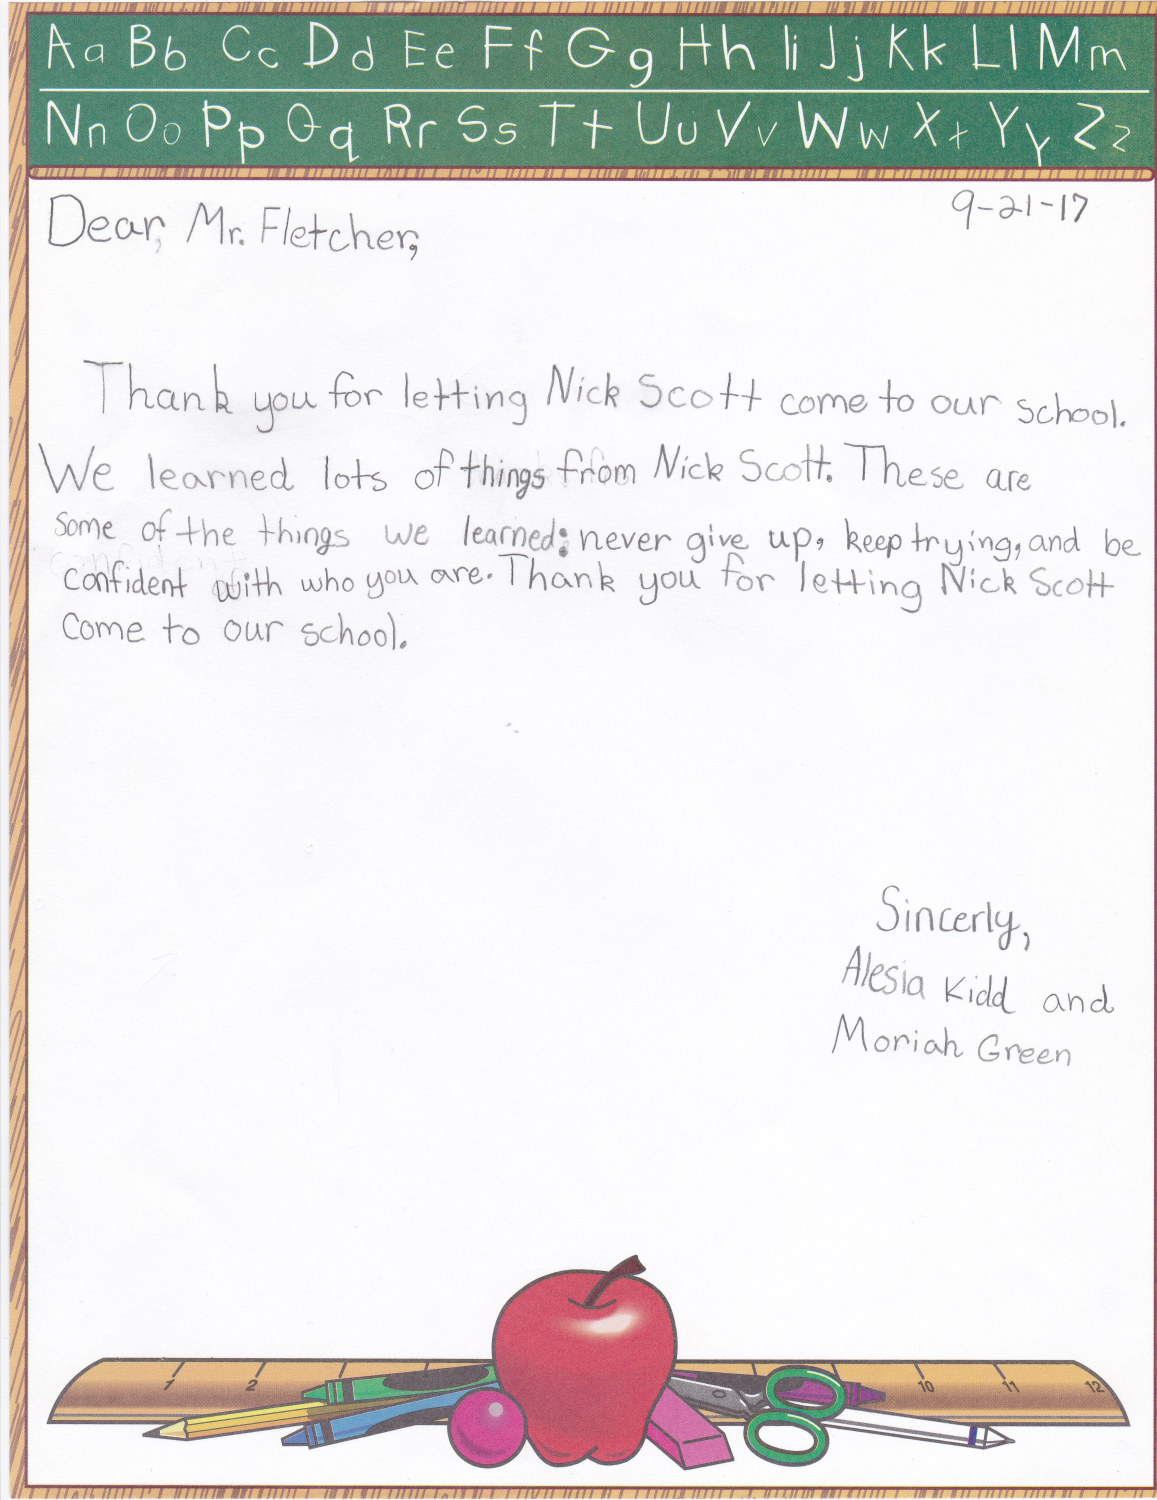 Aa Bb Cc Dd Ee Ff Gg Hh Ii Jj Kk Ll Mm
Nn Oo Pp Qq Rr Ss Tt Uu Vv Ww Xx Yy Zz
9-21-17
Dear, Mr. Fletcher,
Thank you for letting Nick Scott come to our school.
We learned lots of things from Nick Scott. These are
some of the things we learned: never give up, keep trying, and be
confident with who you are. Thank you for letting Nick Scott
come to our school.
Sincerly,
Alesia Kidd and
Moriah Green
1 2 10 11 12